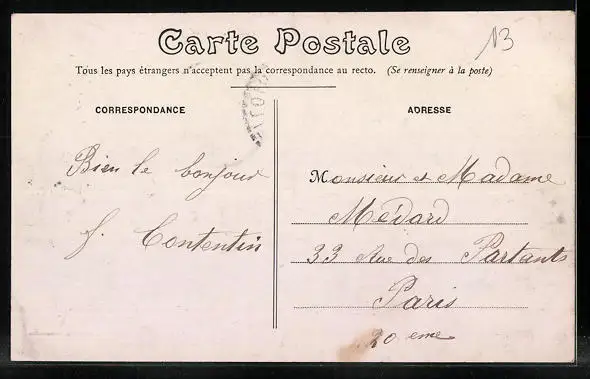 Carte Postale
13
Tous les pays étrangers n'acceptent pas la correspondance au recto. (Se renseigner à la poste)
CORRESPONDANCE
ADRESSE
Bien le bonjour
J. Contentin
Monsieur et Madame
Médard
33 Rue des Partants
Paris
20 eme